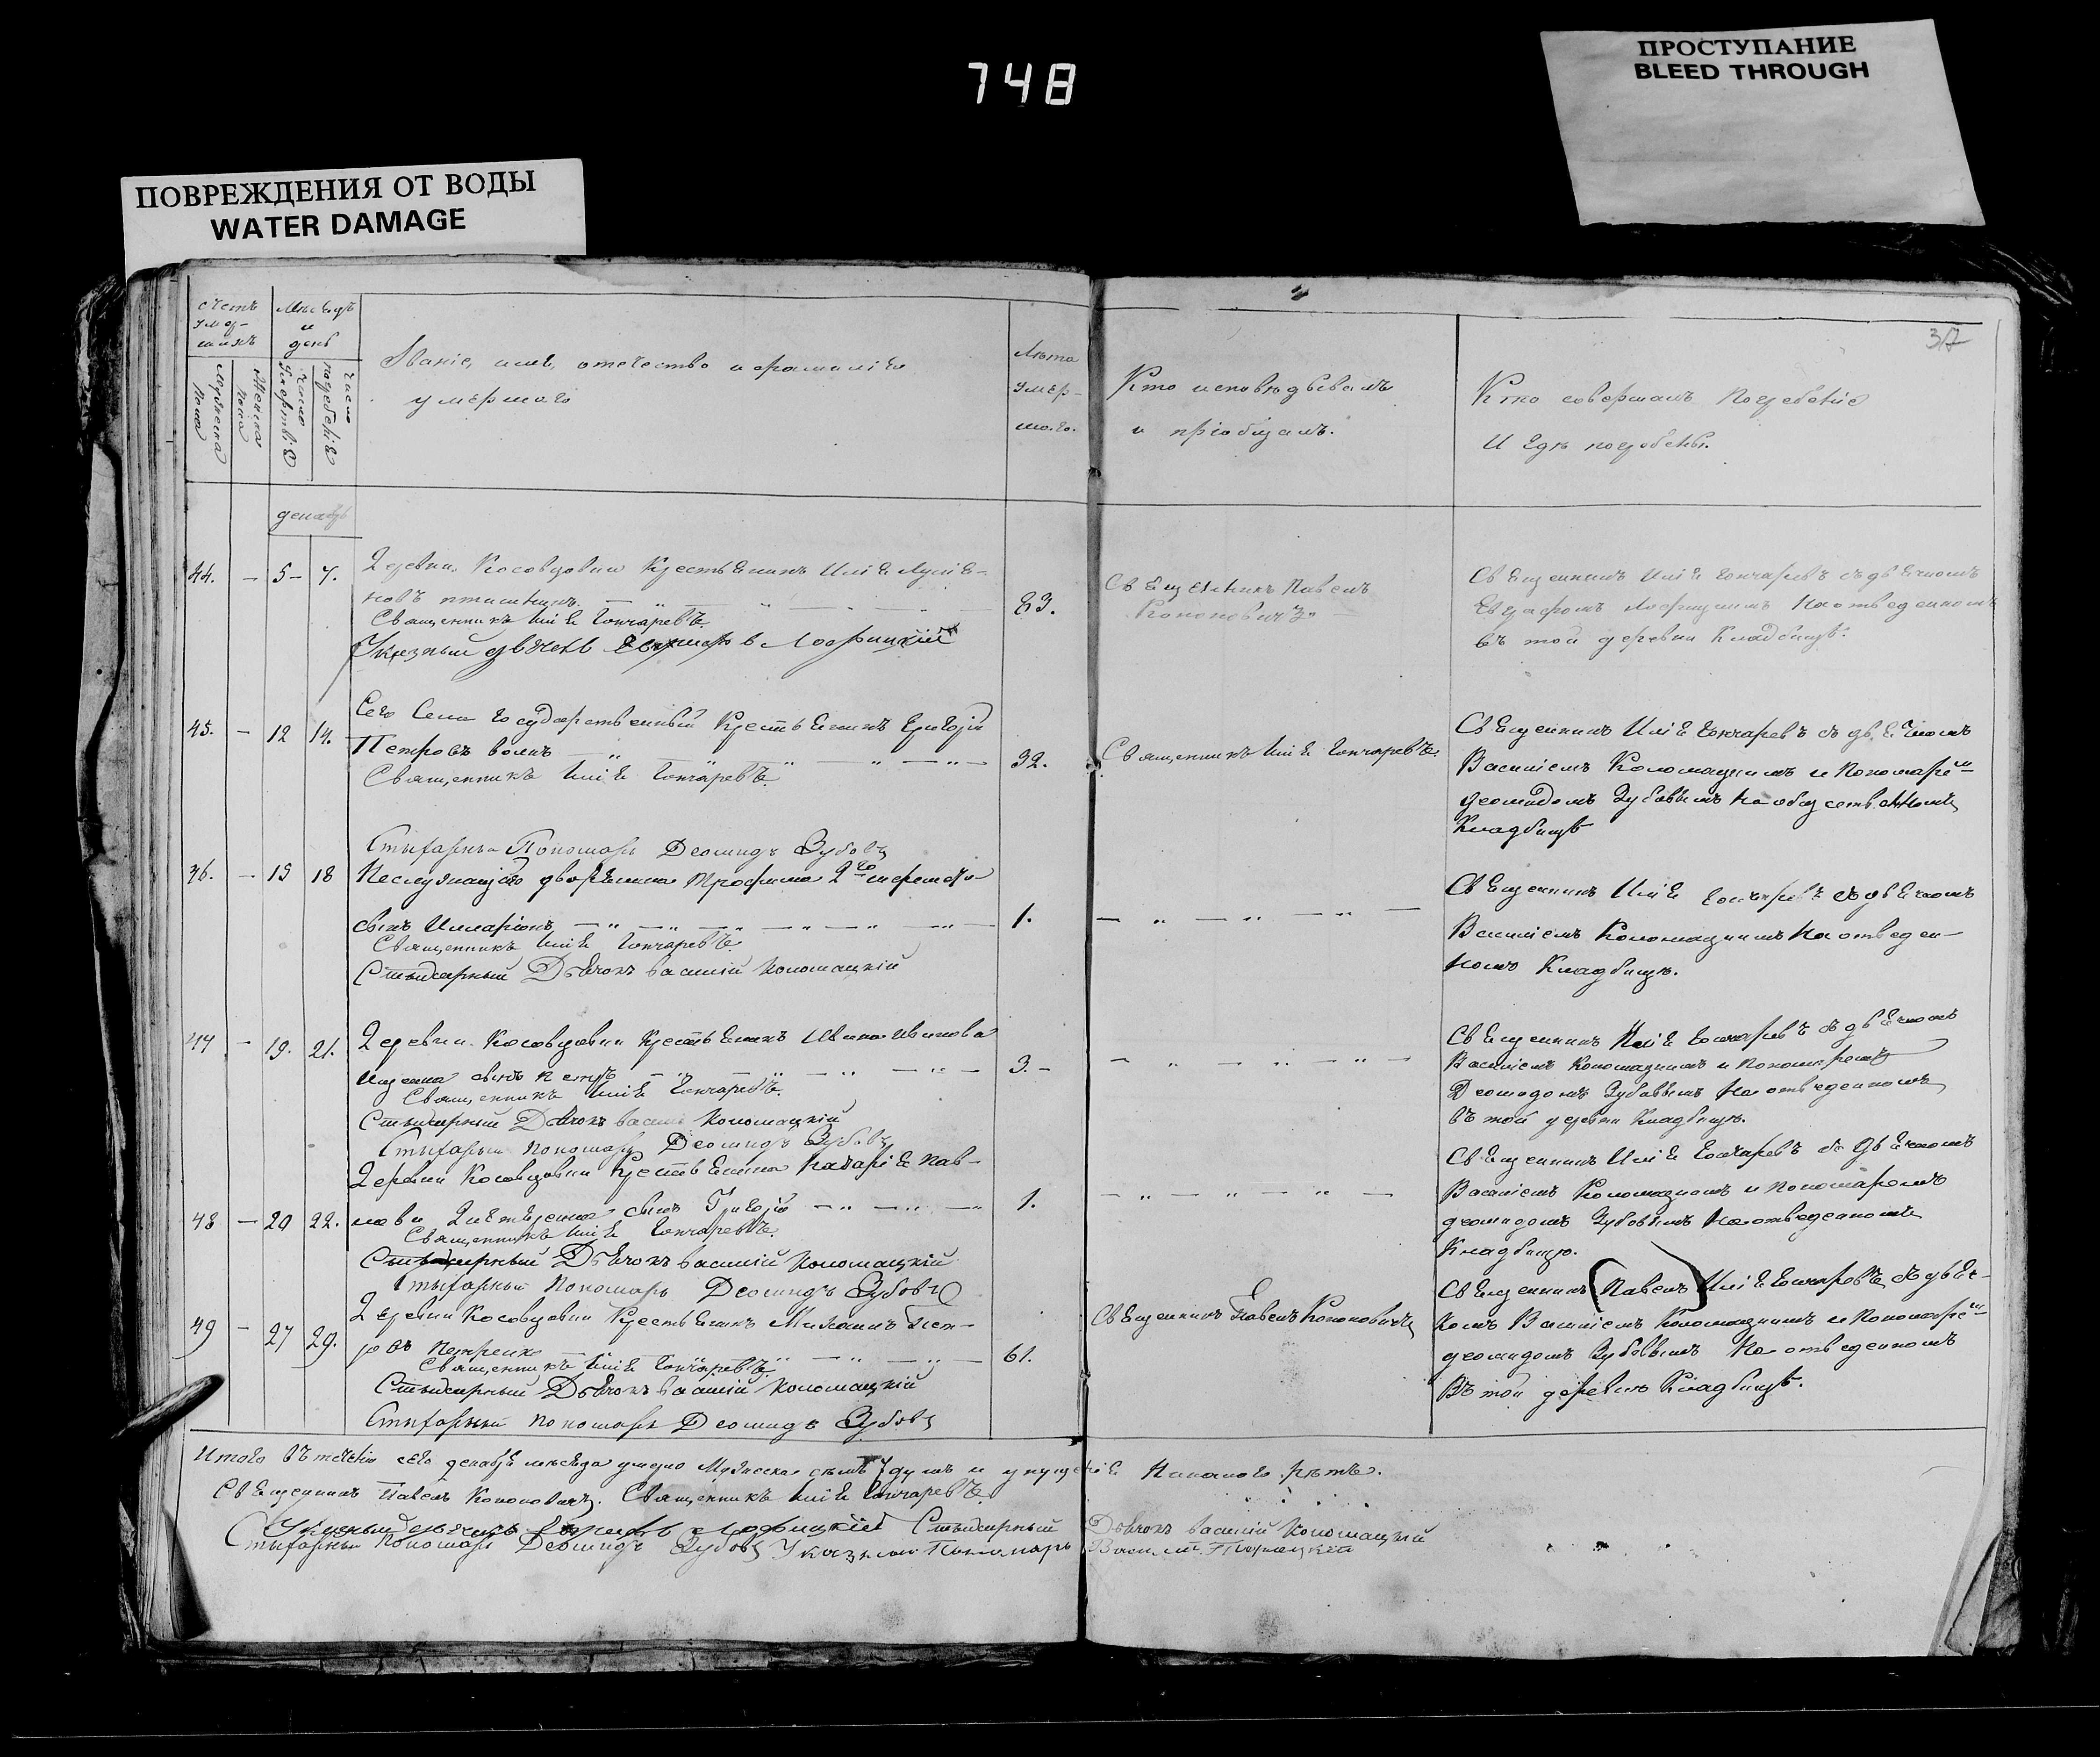 748
ПРОСТУПАНИЕ
BLEED THROUGH
ПОВРЕЖДЕНИЯ ОТ ВОДЫ
WATER DAMAGE
37
счетъ умер-шихъ
Мужеска пола
Женска пола
Мѣсяцъ и день
число смертiя
число погребенiя
Званiе, имя, отечество и фамилiя
умершаго
Лѣта
умер-
шаго.
Кто исповѣдывалъ
и прiобщалъ.
Кто совершалъ погребенiе
И гдѣ погребены.
декабрь
44. — 5 — 7.
Деревни Косовцовки Крестьянинъ Илiя
83.
Священникъ Павелъ
Кононовичъ
Священникъ Илiя Гончаревъ
Указный дьячекъ
Священникъ Илiя Гончаревъ съ дьячкомъ
на отведенномъ
въ той деревни Кладбищѣ.
45. — 12 14.
Сего Села Государственный Крестьянинъ Григорiй
Петровъ
32.
Священникъ Илiя Гончаревъ
Священникъ Илiя Гончаревъ.
Стихарный Пономарь Деомидъ Зубовъ
Священникъ Илiя Гончаревъ съ дьячкомъ
Василiемъ Коломацкимъ и Пономаремъ
Деомидомъ Зубовымъ на общественномъ
Кладбищѣ
46. — 15 18
Неслужащаго дворянина Трофима
сынъ Илларiонъ
1.
Священникъ Илiя Гончаревъ
Стихарный Дьячокъ Василiй Коломацкiй
Священникъ Илiя Гончаревъ съ дьячкомъ
Василiемъ Коломацкимъ на отведен-
номъ Кладбищѣ.
47 — 19. 21.
Деревни Косовцовки Крестьянина Ивана Иванова
сынъ Петръ
3. —
Священникъ Илiя Гончаревъ.
Стихарный Дьячокъ Василiй Коломацкiй
Стихарный Пономарь Деомидъ Зубовъ
Священникъ Илiя Гончаревъ съ дьячкомъ
Василiемъ Коломацкимъ и Пономаремъ
Деомидомъ Зубовымъ на отведенномъ
въ той деревни Кладбищѣ.
48 — 20 22.
Деревни Косовцовки Крестьянина Назарiя Пав-
лова сынъ Григорiй
1.
Священникъ Илiя Гончаревъ.
Стихарный Дьячокъ Василiй Коломацкiй
Стихарный Пономарь Деомидъ Зубовъ
Священникъ Илiя Гончаревъ съ дьячкомъ
Василiемъ Коломацкимъ и пономаремъ
Деомидомъ Зубовымъ на отведенномъ
Кладбищѣ.
49 — 27 29.
Деревни Косовцовки Крестьянинъ Михаилъ Пет-
ровъ Петренко
61.
Священникъ Павелъ Кононовичъ
Священникъ Илiя Гончаревъ
Стихарный Дьячокъ Василiй Коломацкiй
Стихарный Пономарь Деомидъ Зубовъ
Священникъ (Павелъ) Илiя Гончаревъ съ дьяч-
комъ Василiемъ Коломацкимъ и Пономаремъ
Деомидомъ Зубовымъ на отведенномъ
въ той деревнѣ Кладбищѣ.
Итого въ теченiи сего декабря мѣсяца умерло Мужеска семь 7 душъ и упущенiя никакого нѣтъ.
Священникъ Павелъ Кононовичъ. Священникъ Илiя Гончаревъ
Указный дьячекъ Стихарный Дьячокъ Василiй Коломацкiй
Стихарный Пономарь Деомидъ Зубовъ Указный Пономарь Василiй